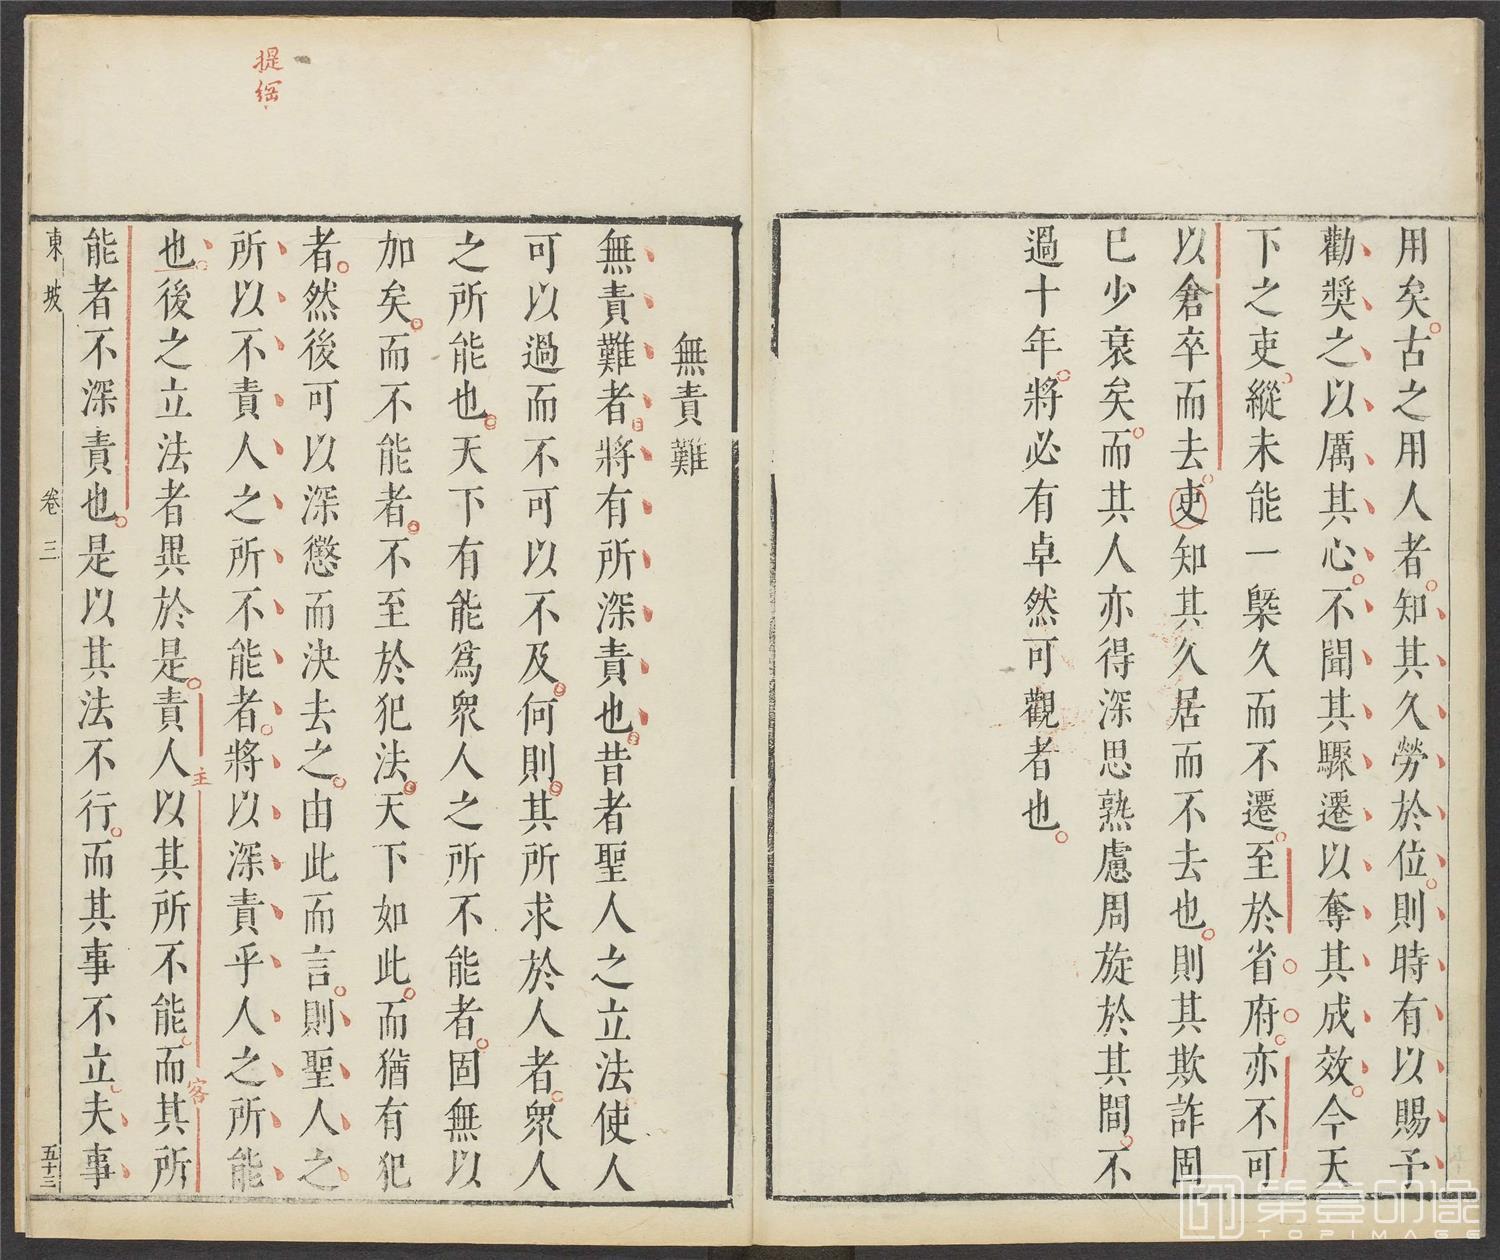 用矣古之用人者知其久勞於位則時有以賜予
勸獎之以厲其心不聞其驟遷以奪其成效今天
下之吏縱未能一槩久而不遷至於省府亦不可
以倉卒而去吏知其久居而不去也則其欺詐固
已少衰矣而其人亦得深思熟慮周旋於其間不
過十年將必有卓然可觀者也
無責難
無責難者將有所深責也昔者聖人之立法使人
可以過而不可以不及何則其所求於人者衆人
之所能也天下有能爲衆人之所不能者固無以
加矣而不能者不至於犯法天下如此而猶有犯
者然後可以深懲而決去之由此而言則聖人之
所以不責人之所不能者將以深責乎人之所能
也後之立法者異於是責人以其所不能而其所
能者不深責也是以其法不行而其事不立夫事
東坡
卷三
五十三
提綱
主
客
第壹印像
TOPIMAGE